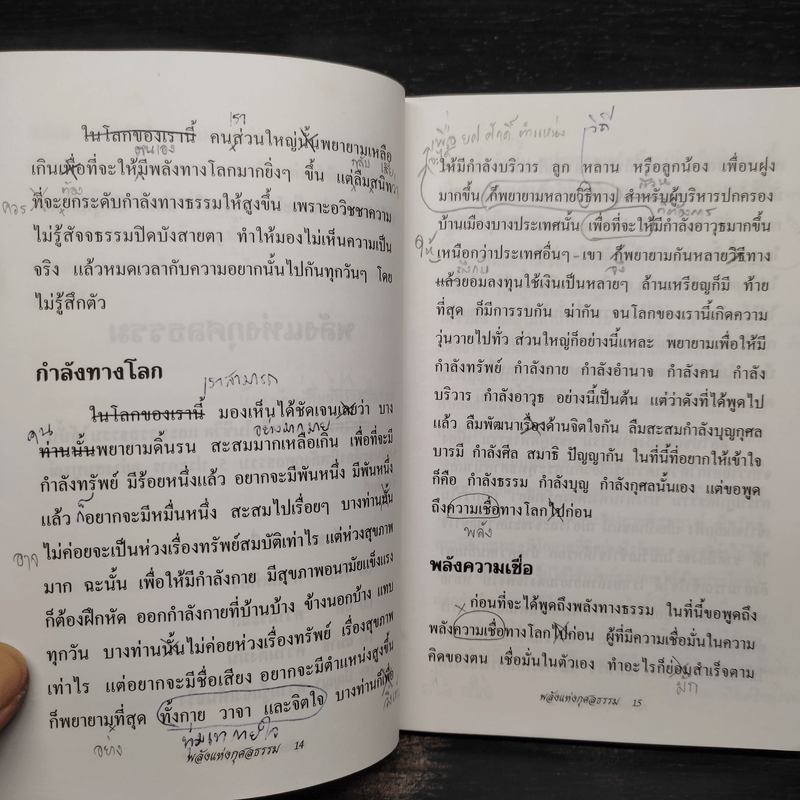 เรา
ในโลกของเรานี้ คนส่วนใหญ่นั้นพยายามเหลือ
ตนเอง
เกินเพื่อที่จะให้มีพลังทางโลกมากยิ่งๆ ขึ้น แต่ลืมสนิทว่า
ควร ต้อง
ที่จะยกระดับกำลังทางธรรมให้สูงขึ้น เพราะอวิชชาความ
ไม่รู้สัจจธรรมปิดบังสายตา ทำให้มองไม่เห็นความเป็น
จริง แล้วหมดเวลากับความอยากนั้นไปกันทุกวันๆ โดย
ไม่รู้สึกตัว
กำลังทางโลก
เราสามารถ
ในโลกของเรานี้ มองเห็นได้ชัดเจนเลยว่า บาง
คน อย่างมากมาย
ท่านนั้นพยายามดิ้นรน สะสมมากเหลือเกิน เพื่อที่จะมี
กำลังทรัพย์ มีร้อยหนึ่งแล้ว อยากจะมีพันหนึ่ง มีพันหนึ่ง
แล้ว ก็อยากจะมีหมื่นหนึ่ง สะสมไปเรื่อยๆ บางท่านนั้น
ไม่ค่อยจะเป็นห่วงเรื่องทรัพย์สมบัติเท่าไร แต่ห่วงสุขภาพ
มาก ฉะนั้น เพื่อให้มีกำลังกาย มีสุขภาพอนามัยแข็งแรง
ก็ต้องฝึกหัด ออกกำลังกายที่บ้านบ้าง ข้างนอกบ้าง แทบ
ทุกวัน บางท่านนั้นไม่ค่อยห่วงเรื่องทรัพย์ เรื่องสุขภาพ
เท่าไร แต่อยากจะมีชื่อเสียง อยากจะมีตำแหน่งสูงขึ้น
ก็พยายามที่สุด ทั้งกาย วาจา และจิตใจ บางท่านก็เพื่อ
อย่าง ทุ่มเท กายใจ
พลังแห่งกุศลธรรม 14
เพื่อ ยศ ศักดิ์ ตำแหน่ง วิธี
ให้มีกำลังบริวาร ลูก หลาน หรือลูกน้อง เพื่อนฝูง
ส่วน
มากขึ้น ก็พยายามหลายวิธีทาง สำหรับผู้บริหารปกครอง
ที่ต้องการ
บ้านเมืองบางประเทศนั้น เพื่อที่จะให้มีกำลังอาวุธมากขึ้น
ให้
เหนือกว่าประเทศอื่นๆ เขา ก็พยายามกันหลายวิธีทาง
ถึงกับ
แล้วยอมลงทุนใช้เงินเป็นหลายๆ ล้านเหรียญก็มี ท้าย
ที่สุด ก็มีการรบกัน ฆ่ากัน จนโลกของเรานี้เกิดความ
วุ่นวายไปทั่ว ส่วนใหญ่ก็อย่างนี้แหละ พยายามเพื่อให้มี
กำลังทรัพย์ กำลังกาย กำลังอำนาจ กำลังคน กำลัง
บริวาร กำลังอาวุธ อย่างนี้เป็นต้น แต่ว่าดังที่ได้พูดไป
แล้ว ลืมพัฒนาเรื่องด้านจิตใจกัน ลืมสะสมกำลังบุญกุศล
บารมี กำลังศีล สมาธิ ปัญญากัน ในที่นี้ที่อยากให้เข้าใจ
ก็คือ กำลังธรรม กำลังบุญ กำลังกุศลนั้นเอง แต่ขอพูด
ถึงความเชื่อทางโลกไปก่อน
พลัง
พลังความเชื่อ
ก่อนที่จะได้พูดถึงพลังทางธรรม ในที่นี้ขอพูดถึง
พลังความเชื่อทางโลกไปก่อน ผู้ที่มีความเชื่อมั่นในความ
คิดของตน เชื่อมั่นในตัวเอง ทำอะไรก็ย่อมสำเร็จตาม
มัก
พลังแห่งกุศลธรรม 15